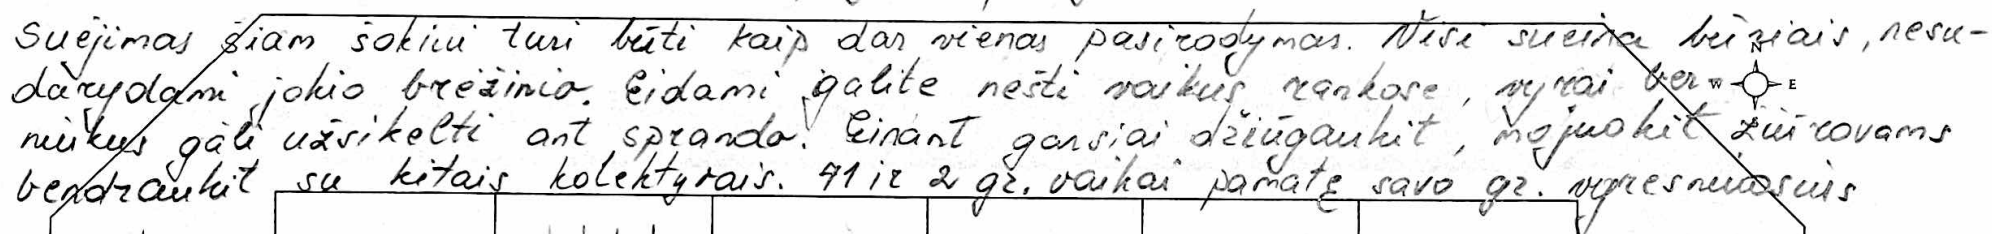 Suėjimas šiam šokiui turi būti kaip dar vienas pasirodymas. Visi sueina būriais, nesu-
darydami jokio brėžinio. Eidami galite nešti vaikus rankose, vyrai ber-
niukus gali užsikelti ant sprando. Einant garsiai džiūgaukit, mojuokit žiūrovams
bendraukit su kitais kolektyvais. 1 ir 2 gr. vaikai pamatę savo gr. vyresniuosius
N
W E